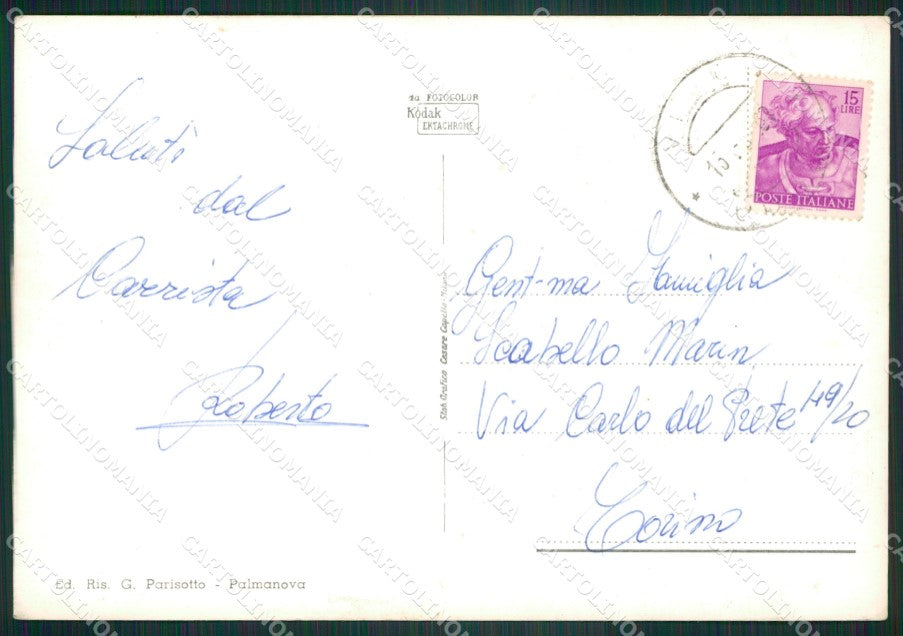 da FOTOCOLOR
Kodak
EKTACHROME
15
LIRE
POSTE ITALIANE
Saluti
dal
Carrista
Roberto
Gent-ma Famiglia
Scabello Marin
Via Carlo del Prete 149/20
Torino
Stab. Grafico Cesare Capello - Milano
Ed. Ris. G. Parisotto - Palmanova
CARTOLINOMANIA